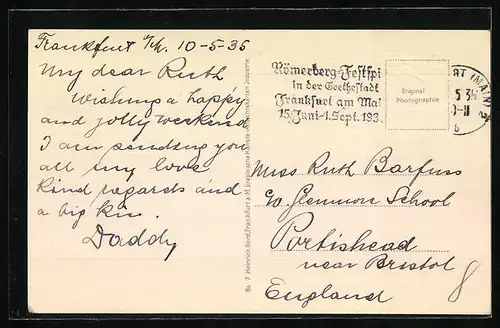 Frankfurt a/M. 10-5-35
My dear Ruth
Wishing a happy
and jolly weekend
I am sending you
all my love
kind regards and
a big kiss.
Daddy
Römerberg-Festspi
in der Goethestadt
Frankfurt am Mai
15. Juni-1. Sept. 193
Original
Photographie
RT (MAIN)
5.35
Miss Ruth Barfuss
c/o. Glennon School
Portishead
near Bristol
England
8